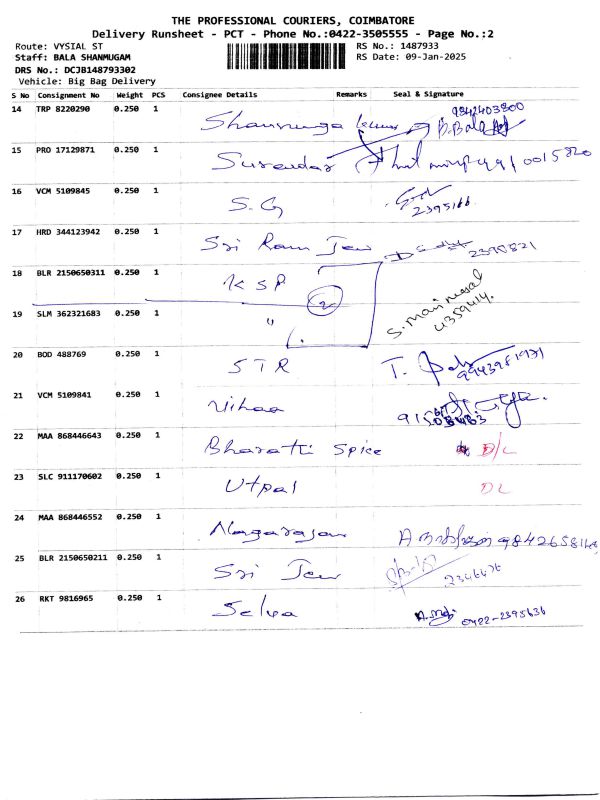 THE PROFESSIONAL COURIERS, COIMBATORE
Delivery Runsheet - PCT - Phone No.:0422-3505555 - Page No.:2
Route: VYSIAL ST RS No.: 1487933
Staff: BALA SHANMUGAM RS Date: 09-Jan-2025
DRS No.: DCJB148793302
Vehicle: Big Bag Delivery
S No Consignment No Weight PCS Consignee Details Remarks Seal & Signature
14 TRP 8220290 0.250 1 Shanmuga 9842403800
15 PRO 17129871 0.250 1 Surendar
16 VCM 5109845 0.250 1 S.G 2395166
17 HRD 344123942 0.250 1 Sri Ram Jew 2395821
18 BLR 2150650311 0.250 1 KSP 2
19 SLM 362321683 0.250 1 " S. Mari 4359414.
20 BOD 488769 0.250 1 STR T. 9943981971
21 VCM 5109841 0.250 1 Vihaa
22 MAA 868446643 0.250 1 Bharatti Spice D/L
23 SLC 911170602 0.250 1 Utpal DL
24 MAA 868446552 0.250 1 Nagarajan
25 BLR 2150650211 0.250 1 Sri Jew 2346676
26 RKT 9816965 0.250 1 Selva 0422-2395636